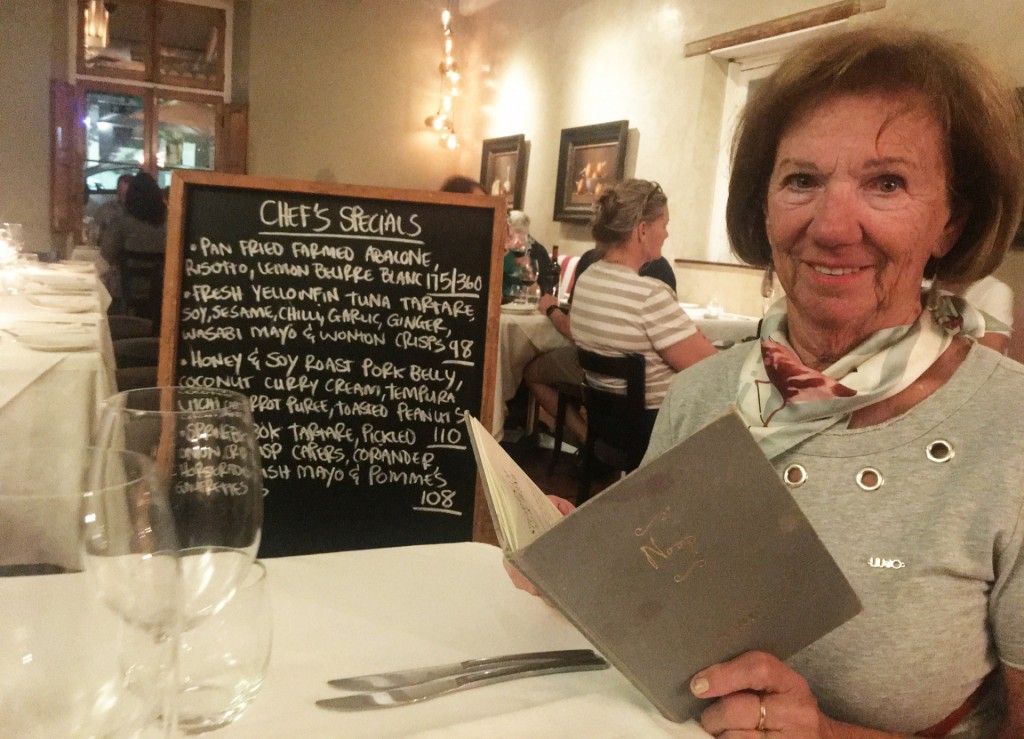 CHEF'S SPECIALS
• PAN FRIED FARMED ABALONE,
RISOTTO, LEMON BEURRE BLANC 175/360
• FRESH YELLOWFIN TUNA TARTARE,
SOY, SESAME, CHILLI, GARLIC, GINGER,
WASABI MAYO & WONTON CRISPS 98
• HONEY & SOY ROAST PORK BELLY,
COCONUT CURRY CREAM, TEMPURA
PUREE, TOASTED PEANUTS
110
TARTARE, PICKLED
CAPERS, CORIANDER
MAYO & POMMES
108
Noop
LIU·JO